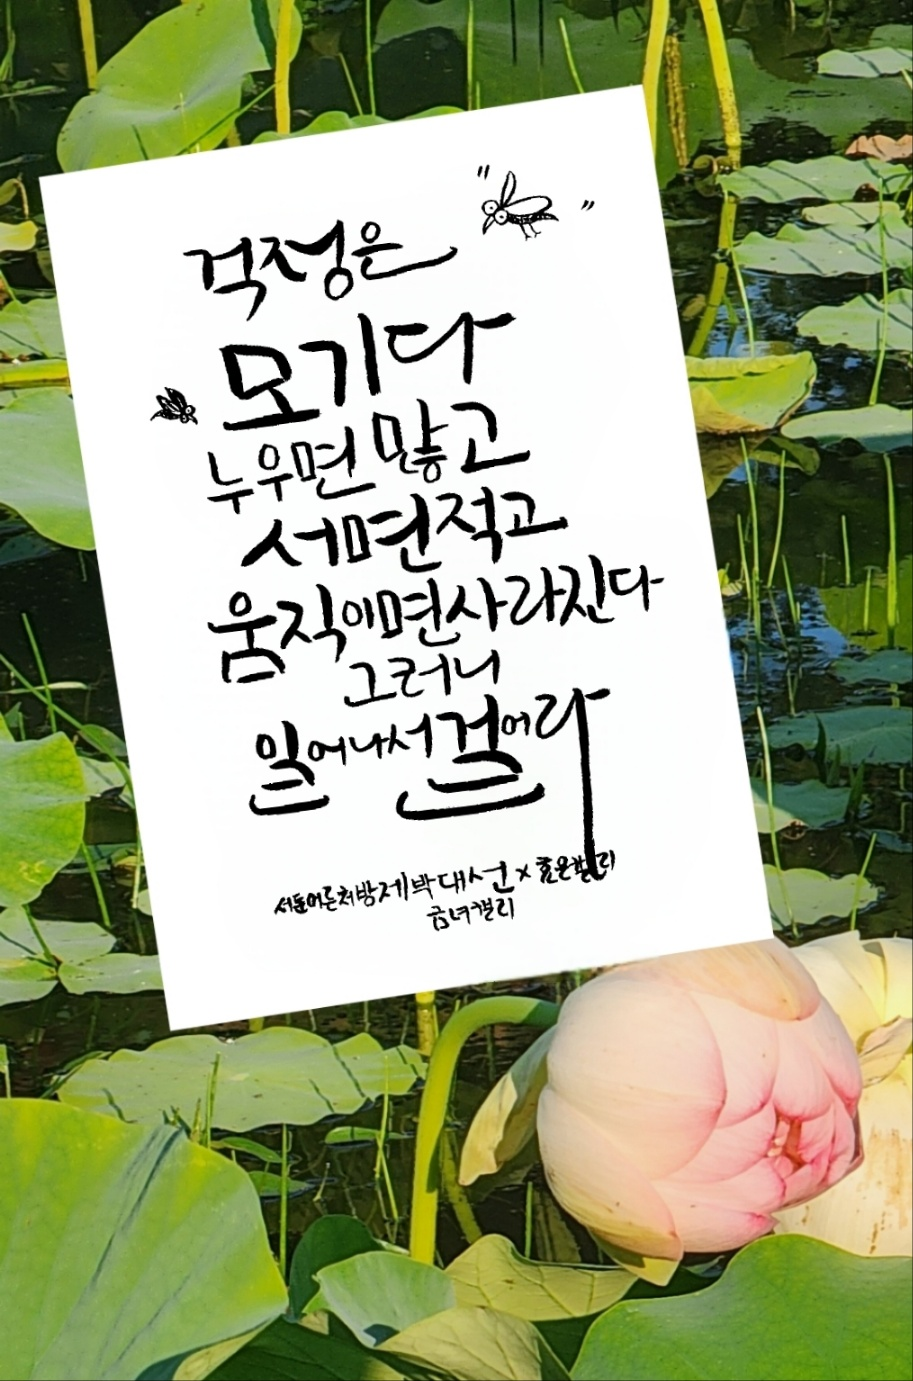 걱정은
모기다
누우면 많고
서면 적고
움직이면 사라진다
그러니
일어나서 걸어라
서툰어른처방제 박대선 x 효은캘리
금녀캘리